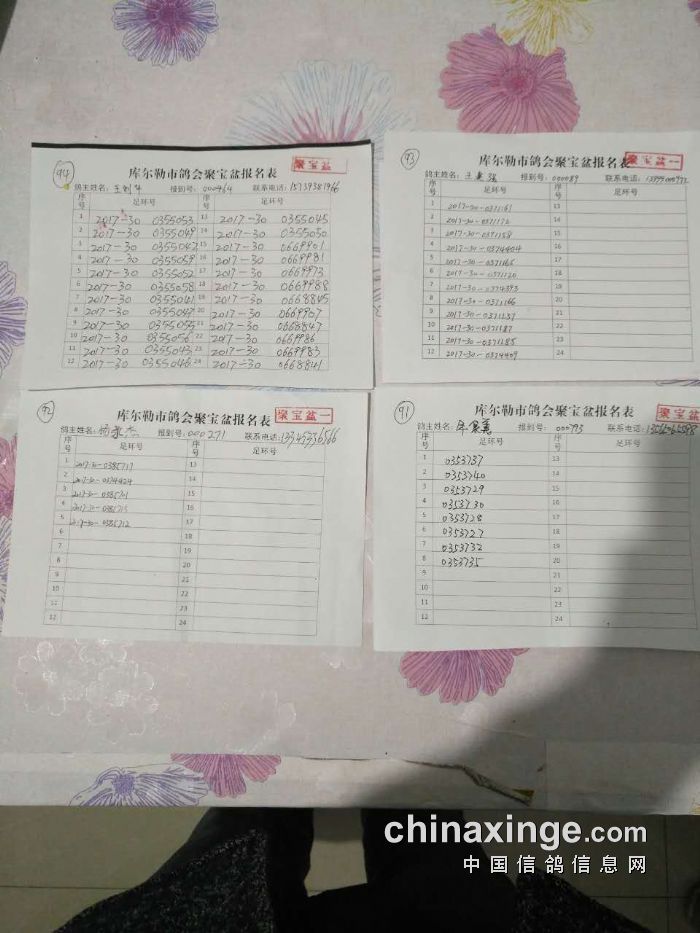 94
库尔勒市鸽会聚宝盆报名表
聚宝盆
鸽主姓名: 报到号:000464 联系电话:15739381966
序号 足环号 序号 足环号
1 2017-30 0355053 13 2017-30 0355045
2 2017-30 0355049 14 2017-30 0355050
3 2017-30 0355042 15 2017-30 0669901
4 2017-30 0355059 16 2017-30 0669981
5 2017-30 0355052 17 2017-30 0669973
6 2017-30 0355058 18 2017-30 0669988
7 2017-30 0355041 19 2017-30 0668845
8 2017-30 0355047 20 2017-30 0669907
9 2017-30 0355055 21 2017-30 0668847
10 2017-30 0355056 22 2017-30 0669986
11 2017-30 0355043 23 2017-30 0669983
12 2017-30 0355046 24 2017-30 0668841
93
库尔勒市鸽会聚宝盆报名表
聚宝盆一
鸽主姓名: 报到号:000089 联系电话:
序号 足环号 序号 足环号
1 2017-30-0371161 13
2 2017-30-0371172 14
3 2017-30-0371158 15
4 2017-30-0374404 16
5 2017-30-0371165 17
6 2017-30-0371120 18
7 2017-30-0374393 19
8 2017-30-0371166 20
9 2017-30-0371137 21
10 2017-30-0371187 22
11 2017-30-0371185 23
12 2017-30-0374409 24
92
库尔勒市鸽会聚宝盆报名表
聚宝盆一
鸽主姓名: 报到号:000271 联系电话:
序号 足环号 序号 足环号
1 13
2 14
3 15
4 16
5 2017-30-0385712 17
6 18
7 19
8 20
9 21
10 22
11 23
12 24
91
库尔勒市鸽会聚宝盆报名表
聚宝盆一
鸽主姓名: 报到号:000793 联系电话:
序号 足环号 序号 足环号
1 0353737 13
2 0353740 14
3 0353729 15
4 0353730 16
5 0353728 17
6 0353727 18
7 0353732 19
8 0353735 20
9 21
10 22
11 23
12 24
chinaxinge.com
中国信鸽信息网